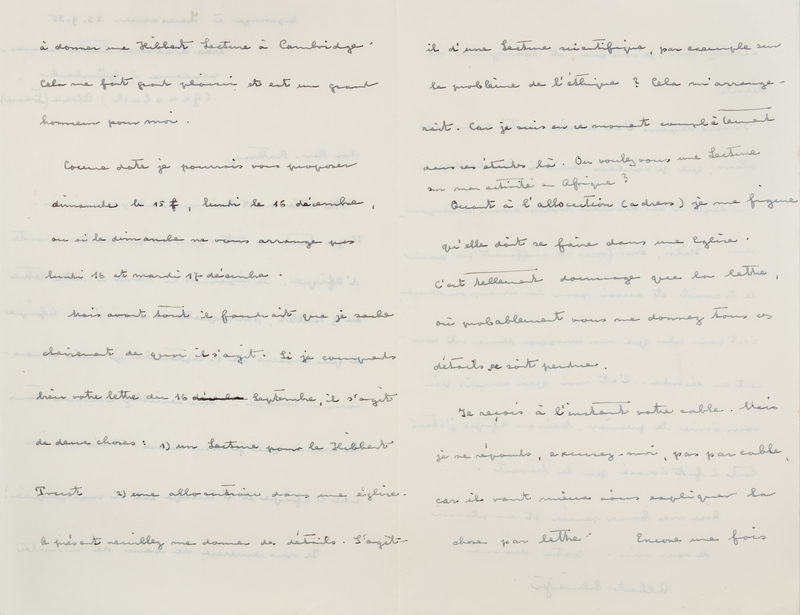 à donner une Hibbert Lecture à Cambridge.
Cela me fait grand plaisir et est un grand
honneur pour moi.
Comme date je pourrais vous proposer
dimanche le 15, lundi le 16 décembre,
ou si le dimanche ne vous arrange pas
lundi 16 et mardi 17 décembre.
Mais avant tout il faudrait que je sache
clairement de quoi il s'agit. Si je comprends
bien votre lettre du 16 Septembre, il s'agit
de deux choses: 1) un Lecture pour le Hibbert
Trust 2) une allocution dans une église.
à présent veuillez me donner des détails. S'agit-
il d'une Lecture scientifique, par exemple sur
le problème de l'éthique ? Cela m'arrange-
rait. Car je suis en ce moment complètement
dans ces études là. Ou voulez vous une Lecture
sur mon activité en Afrique ?
Quant à l'allocution (adress) je me figure
qu'elle doit se faire dans une Eglise.
C'est tellement dommage que la lettre,
où probablement vous me donnez tous ces
détails se soit perdue.
Je reçois à l'instant votre cable. Mais
je ne réponds, excusez-moi, pas par cable,
car il vaut mieux vous expliquer la
chose par lettre. Encore une fois